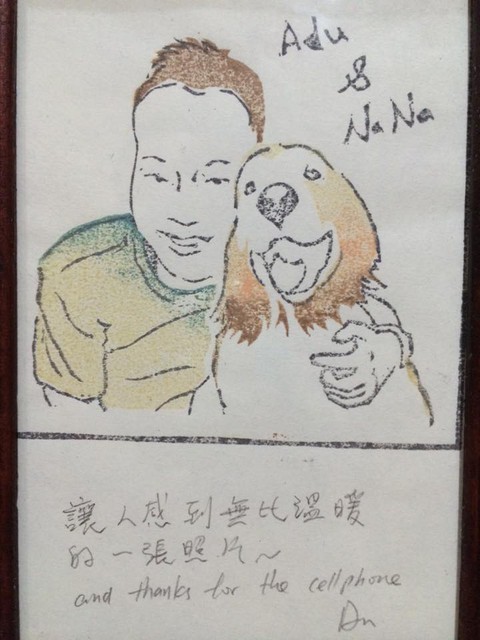 Adu
&
NaNa
讓人感到無比溫暖
的一張照片~
and thanks for the cellphone